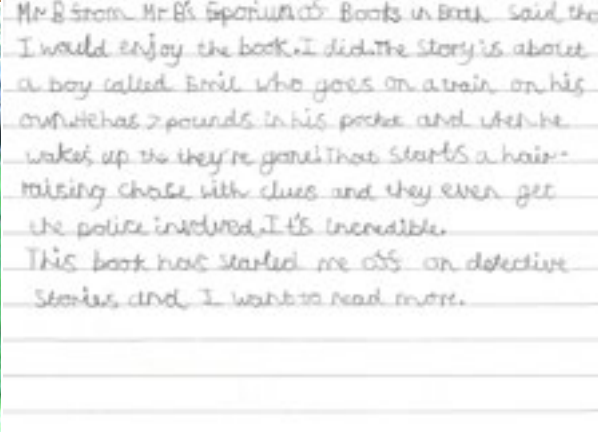 Mr B from Mr B's Emporium of Books in Bath said tha
I would enjoy the book. I did. The story is about
a boy called Emil who goes on a train on his
own. He has 7 pounds in his pocket and when he
wakes up the they're gone! That starts a hair-
raising chase with clues and they even get
the police involved. It's incredible.
This book has started me off on detective
stories and I want to read more.